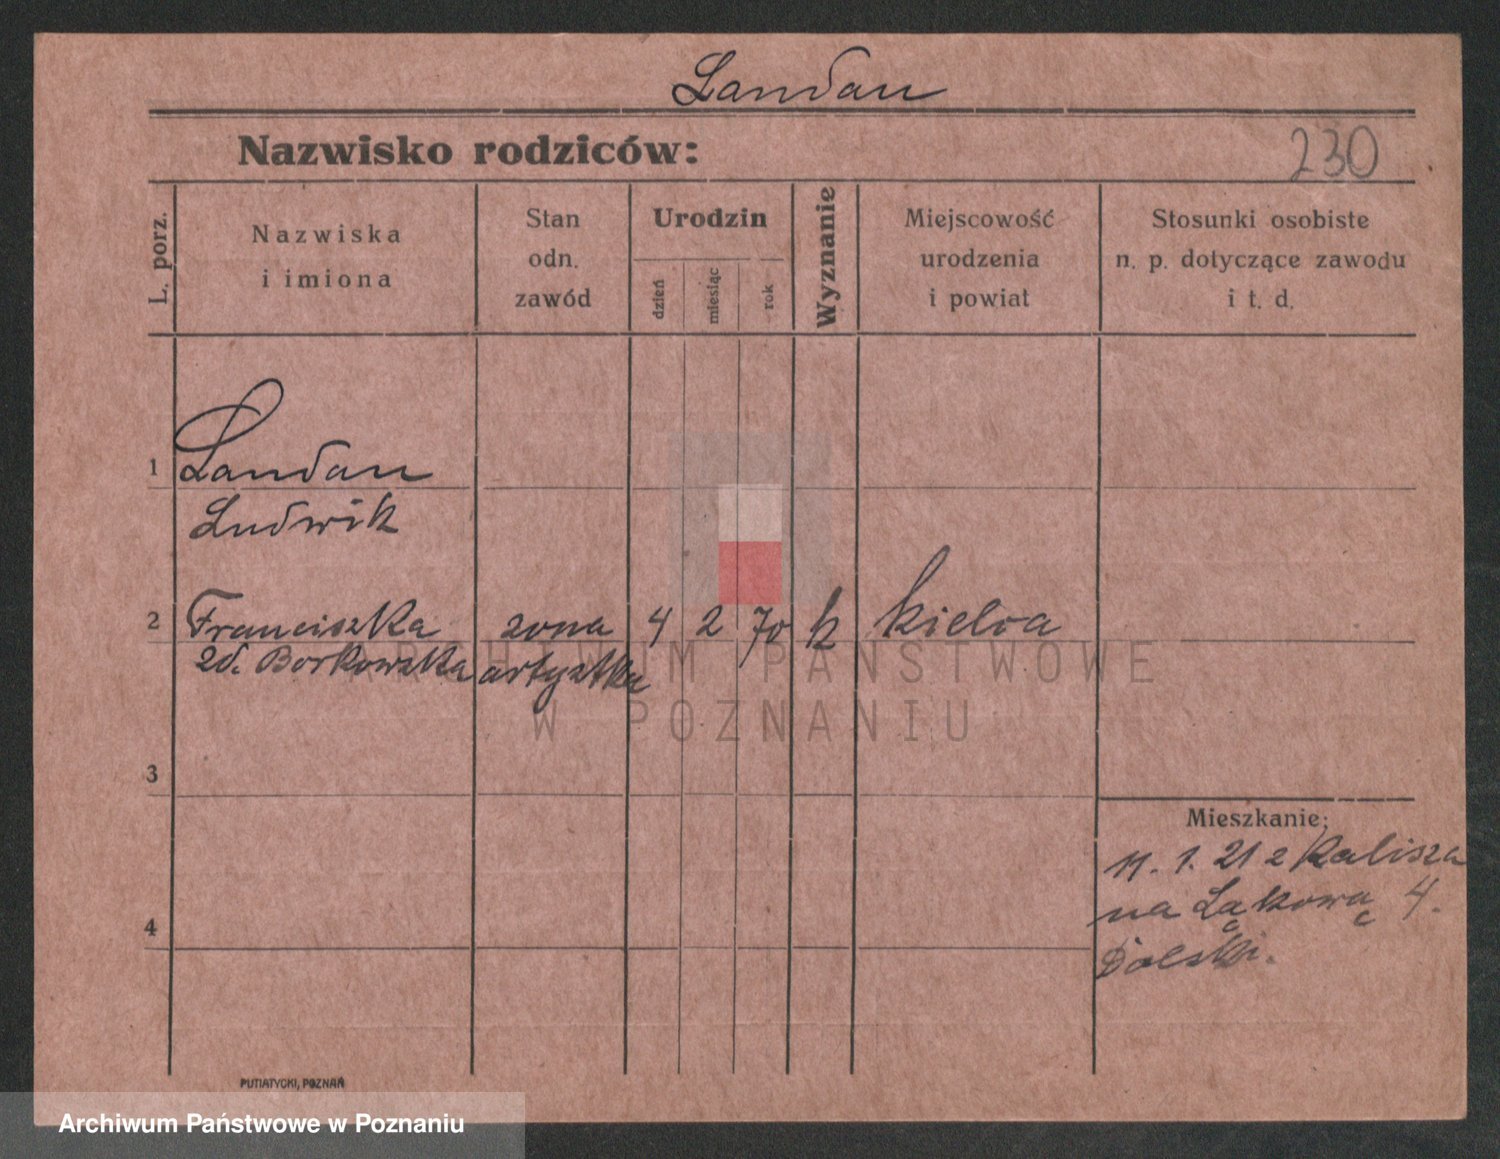 Landau
Nazwisko rodziców:
230
L. porz.
Nazwiska
i imiona
Stan
odn.
zawód
Urodzin
dzień
miesiąc
rok
Wyznanie
Miejscowość
urodzenia
i powiat
Stosunki osobiste
n. p. dotyczące zawodu
i t. d.
1 Landau
Ludwik
2 Franciszka zona 4 2 70 k Kielca
zd. Borkowska artystka
ARCHIWUM PAŃSTWOWE
W POZNANIU
3
Mieszkanie:
11. 1. 21 z Kalisza
na Łąkową 4.
4
Dolski.
PUTIATYCKI, POZNAŃ
Archiwum Państwowe w Poznaniu